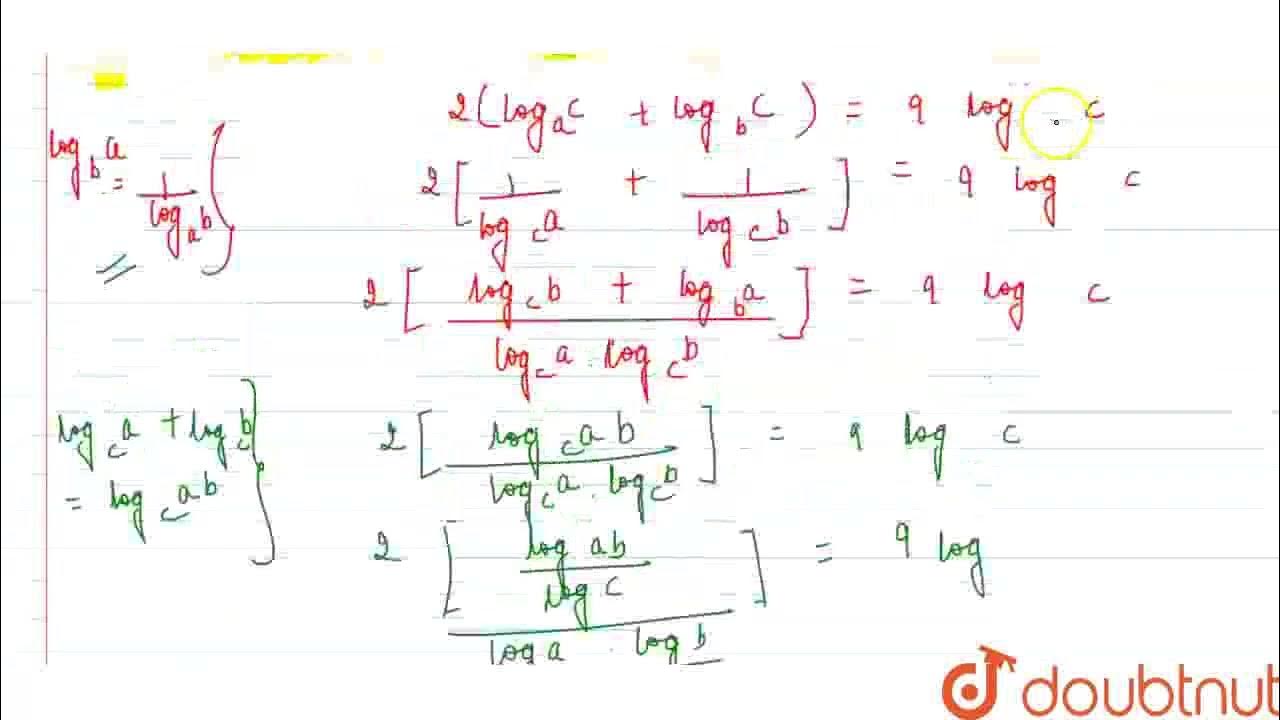 2(log_a c + log_b c) = 9 log c
log_b a = 1/log_a b
2[1/log_c a + 1/log_c b] = 9 log c
2[(log_c b + log_b a)/(log_c a . log_c b)] = 9 log c
log_c a + log_c b
= log_c ab
2[(log_c ab)/(log_c a . log_c b)] = 9 log c
2[(log ab/log c)/(log a . log b)] = 9 log
doubtnut